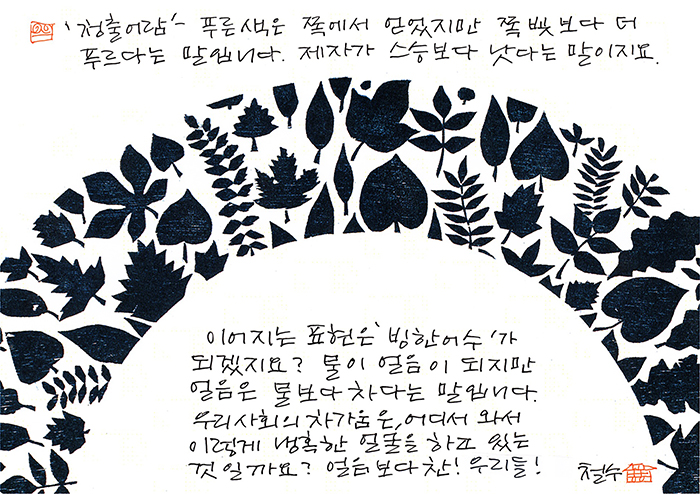 '청출어람'- 푸른색은 쪽에서 얻었지만 쪽빛보다 더
푸르다는 말입니다. 제자가 스승보다 낫다는 말이지요.
이어지는 표현은 '빙한어수'가
되겠지요? 물이 얼음이 되지만
얼음은 물보다 차다는 말입니다.
우리사회의 차가움은, 어디서 와서
이렇게 냉혹한 얼굴을 하고 있는
것일까요? 얼음보다 찬! 우리들!
철수